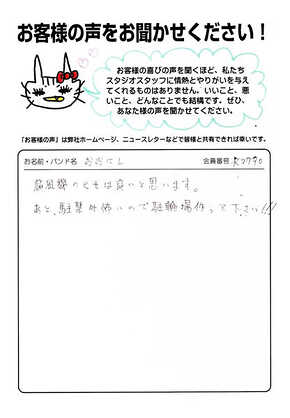 お客様の声をお聞かせください！
お客様の喜びの声を聞くほど、私たち
スタジオスタッフに情熱とやりがいを与え
てくれるものはありません。いいこと、悪
いこと、どんなことでも結構です。ぜひ、
あなた様の声を聞かせください。
「お客様の声」は弊社ホームページ、ニュースレターなどで皆様と共有できれば幸いです。
お名前・バンド名 おおにし 会員番号
扇風機のともは良いと思います。
あと、駐禁が怖いので駐輪場作って下さい!!!